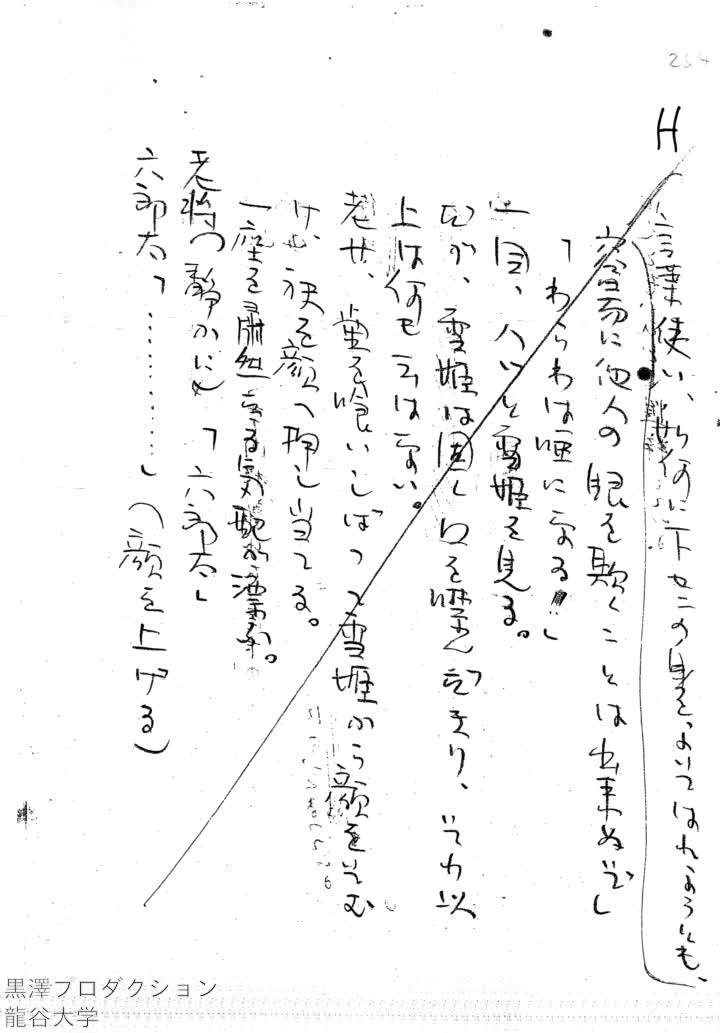 254
H
言葉使い、如何に下
容易に他人の眼を欺くことは出来ぬぞ」
「わらわは唖になる!!」
一同、ハッと雪姫を見る。
だが、雪姫は固く口を噤んだきり、それ以
上は何も云はない。
老女、歯を喰いしばって雪姫から顔をそむ
け、袂を顔へ押し当てる。
一座を粛然たる気配が
老将の静かに 「六郎太」
六郎太「………」(顔を上げる)
黒澤プロダクション
龍谷大学